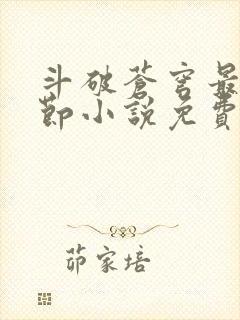 斗破蒼穹最
節小說免費
茆家培